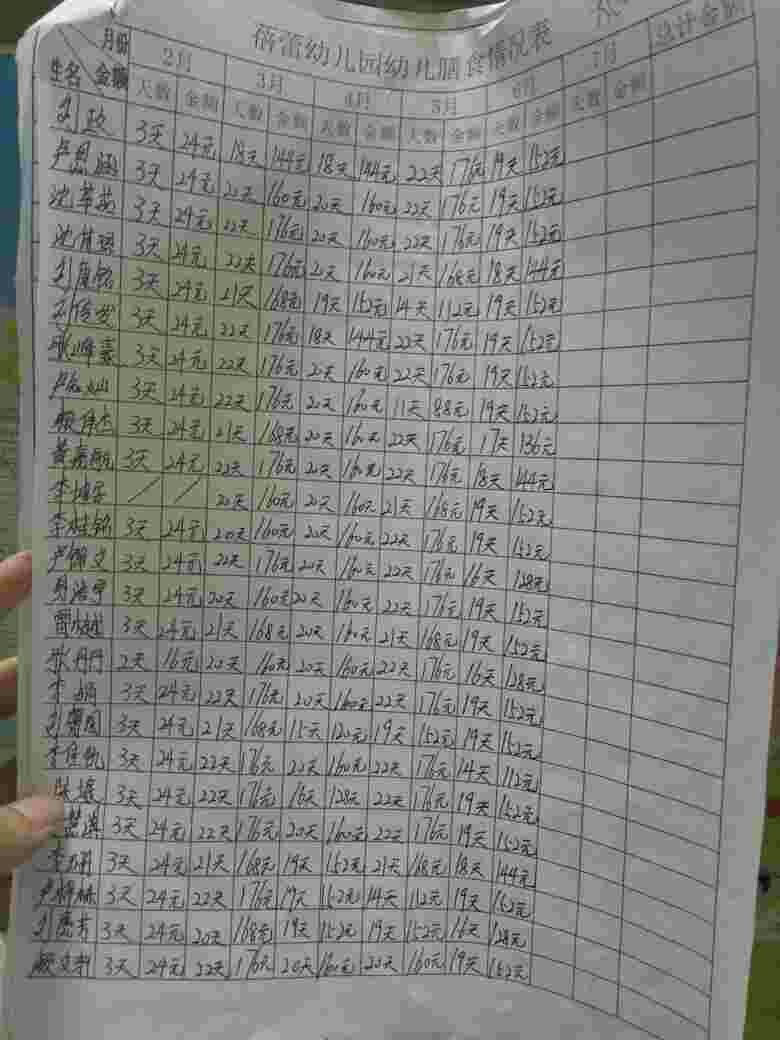 蓓蕾幼儿园幼儿膳食情况表
月份 2月 3月 4月 5月 6月 7月 总计金额
生名 金额 天数 金额 天数 金额 天数 金额 天数 金额 天数 金额 天数 金额
刘政 3天 24元 18天 144元 18天 144元 22天 176元 19天 152元
卢思涵 3天 24元 20天 160元 20天 160元 22天 176元 19天 152元
沈 3天 24元 22天 176元 20天 160元 22天 176元 19天 152元
沈 3天 24元 22天 176元 20天 160元 21天 168元 18天 144元
刘 3天 24元 21天 168元 19天 152元 14天 112元 19天 152元
刘 3天 24元 22天 176元 18天 144元 22天 176元 19天 152元
张峰嘉 3天 24元 22天 176元 20天 160元 22天 176元 19天 152元
卢 3天 24元 22天 176元 20天 160元 11天 88元 19天 152元
伟杰 3天 24元 21天 168元 20天 160元 22天 176元 17天 136元
黄 3天 24元 22天 176元 20天 160元 22天 176元 18天 144元
李 / / 20天 160元 20天 160元 21天 168元 19天 152元
李桂铭 3天 24元 20天 160元 20天 160元 22天 176元 19天 152元
卢锦文 3天 24元 22天 176元 20天 160元 22天 176元 16天 128元
3天 24元 20天 160元 20天 160元 22天 176元 19天 152元
3天 24元 21天 168元 20天 160元 21天 168元 19天 152元
张丹丹 2天 16元 20天 160元 20天 160元 22天 176元 16天 128元
李娟 3天 24元 22天 176元 20天 160元 22天 176元 19天 152元
刘 3天 24元 21天 168元 15天 120元 19天 152元 19天 152元
李佳凯 3天 24元 22天 176元 20天 160元 22天 176元 14天 112元
3天 24元 22天 176元 16天 128元 22天 176元 19天 152元
3天 24元 22天 176元 20天 160元 22天 176元 19天 152元
李 3天 24元 21天 168元 19天 152元 21天 168元 18天 144元
卢 3天 24元 22天 176元 19天 152元 14天 112元 19天 152元
刘 3天 24元 20天 168元 19天 152元 19天 152元 16天 128元
3天 24元 22天 176元 20天 160元 20天 160元 19天 152元